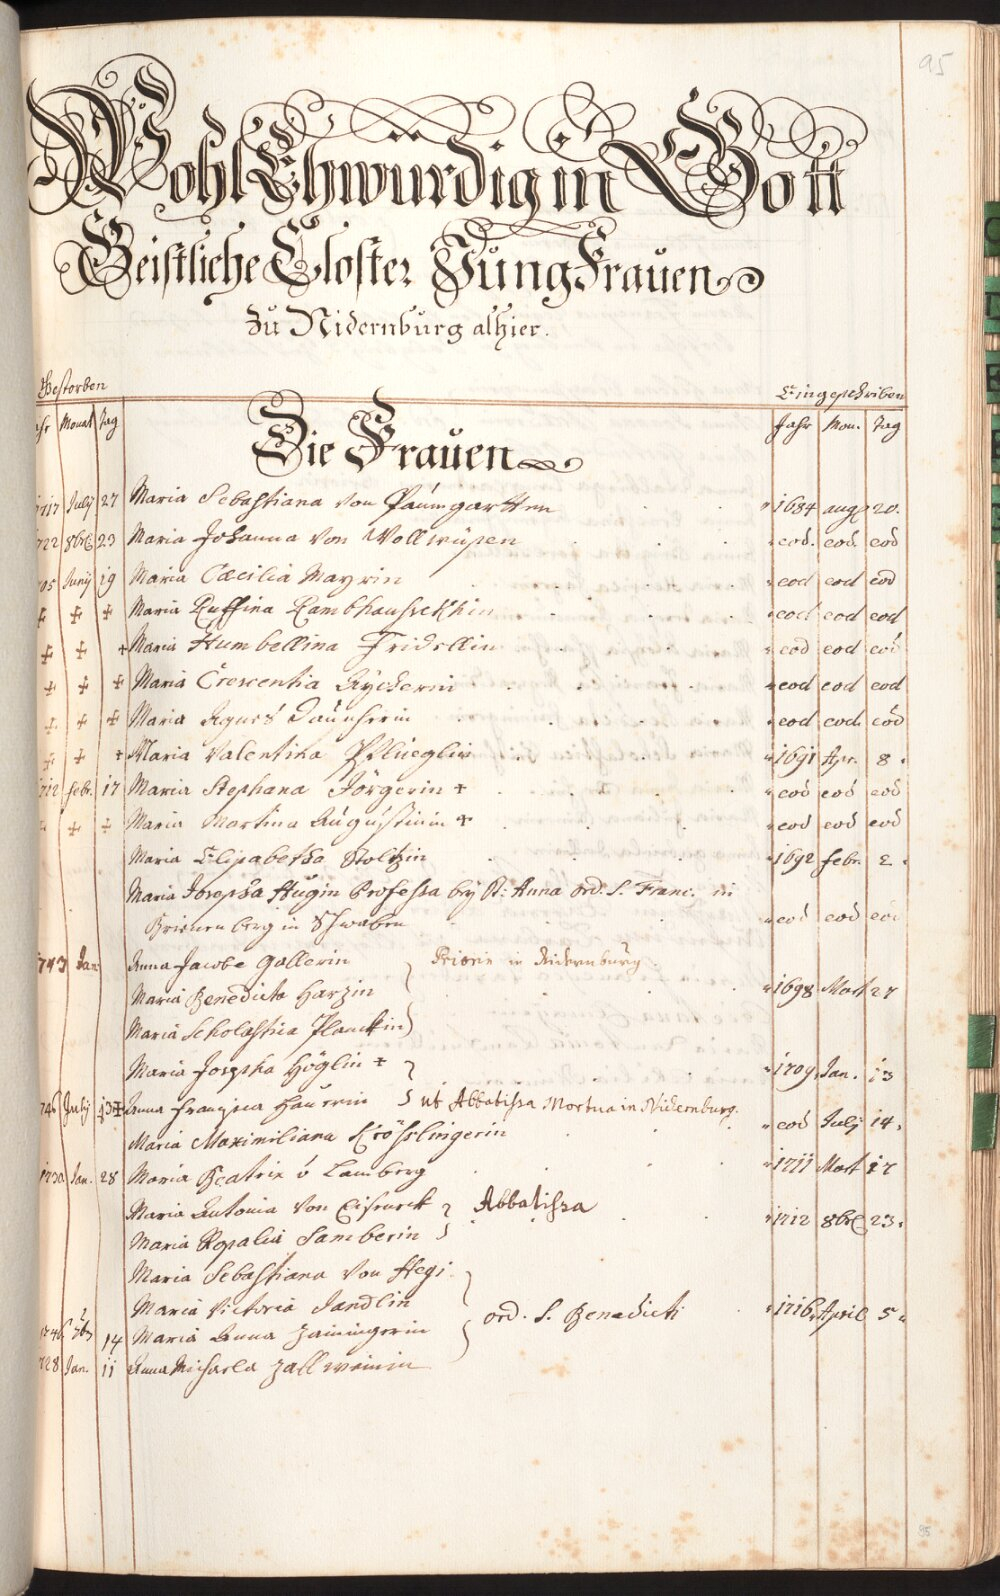 95
WohlEhwürdig in Gott
Geistliche Closter JungFrauen
Zu Nidernburg alhier.
Gestorben Eingeschriben
Monat Tag Die Frauen Jahr Mon. Tag
1717 July 27 Maria Sebastiana von Paumgartten 1684 aug 20.
722 8br 23 Maria Johanna von Wollwisen eod. eod. eod
705 Juny 19 Maria Cæcilia Mayrin eod eod eod
+ + + Maria Ruffina eod eod eod
+ + + Maria Humbellina Fridellin eod eod eod
+ + + Maria Crescentia eod eod eod
+ + + Maria Agnes eod eod eod
+ + + Maria Valentina 1691 Apr. 8.
712 febr. 17 Maria Stephana Jörgerin + eod eod eod
+ + + Maria Martina Augustinin + eod eod eod
Maria Elisabetha Stoltzin 1692 febr. 2.
Maria Josepha Hugin Professa bey S: Anna ord. S. Franc. in
berg in Schwaben eod eod eod
1743 Jan Anna Jacobe Gollerin Priorin in Nidernburg.
Maria Benedicta Harzin 1698 Mart 27
Maria Scholastica Planckin
Maria Josepha Höglin + 1709 Jan. 13
746 July 13 + Anna Francisca Hauerin ut Abbatissa Mortua in Nidernburg.
Maria Maximiliana Krösslingerin eod July 14.
1730 Jan. 28 Maria Beatrix v Lamberg 1711 Mart 17
Maria Antonia von Eiseneck Abbatissa 1712 8br 23.
Maria Rosalia Samberin
Maria Sebastiana von Hegi
Maria Victoria Jandlin ord. S. Benedicti 1716 April 5
1746 14 Maria Anna Zainingerin
728 Jan. 11 Anna Michaela Zallweinin
95